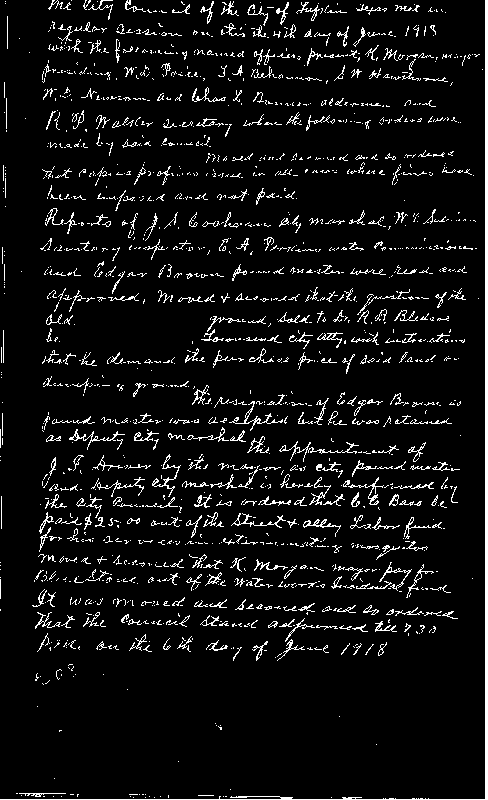 The City Council of the City of Lufkin Texas met in
regular session on this the 4th day of June 1918
with the following named officers present, K. Morgan, mayor
presiding, W.L. Price, T.A. Behannon, S W Hawthorne,
W.D. Newsom and Chas L. aldermen and
R.P. Walker secretary when the following orders were
made by said council
Moved and seconed and so ordered
that capias profines issue in all cases where fines have
been imposed and not paid.
Reports of J.S. Cochran City marshal, W.T.
Sanitary inspector, E.A. Perkins water Commissioner
and Edgar Brown pound master were read and
approved. Moved & second that the question of the
old ground, sold to Dr. R.R. Bledsoe
be Townsend City Atty, with instructions
that he demand the purchase price of said land or
dumping ground.
The resignation of Edgar Brown as
pound master was accepted but he was retained
as Deputy City marshal.
the appointment of
J.F. Driver by the mayor, as city pound master
and Deputy City marshal is hereby confirmed by
the City Council. It is ordered that C.C. Bass be
paid $25.00 out of the Street & alley Labor fund
for his services in exterminating mosquitos
moved & seconed that K. Morgan mayor pay for
Blue Stone out of the Waterworks Incidental fund
It was moved and seconed and so ordered
that the Council stand adjourned till 7.30
P.M. on the 6th day of June 1918